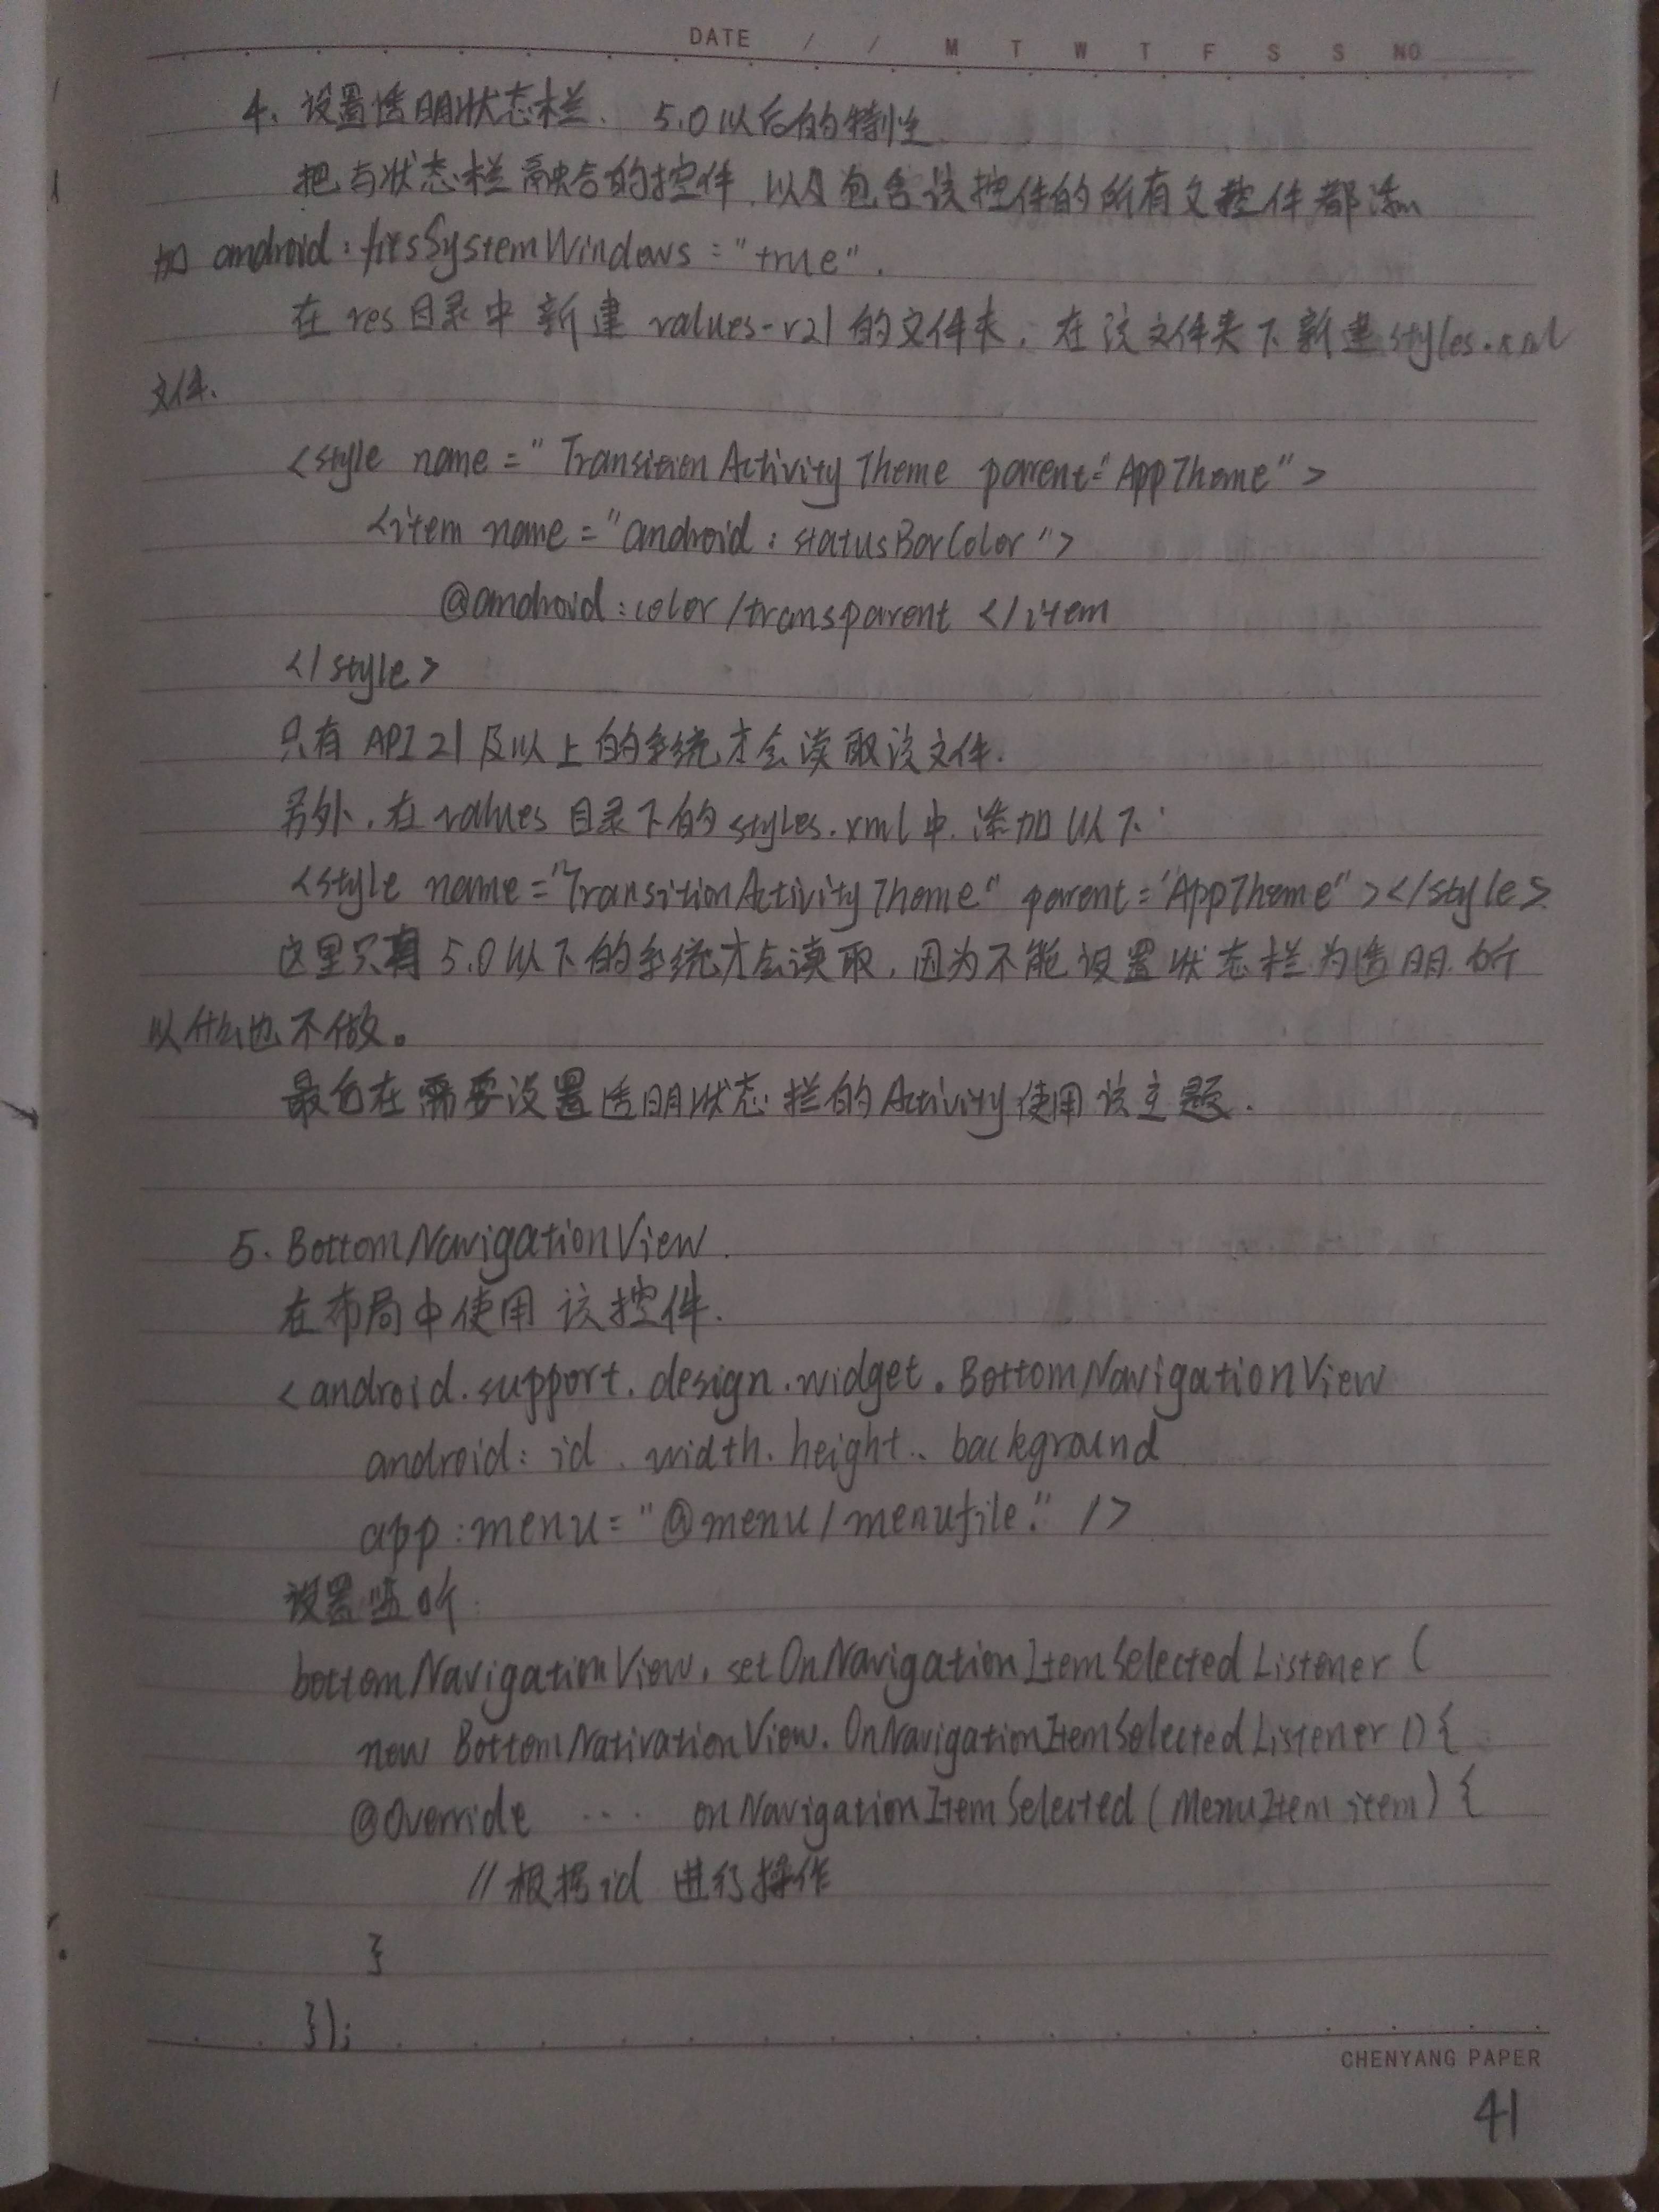 DATE / / M T W T F S S NO
4、设置透明状态栏、 5.0以后的特性
把与状态栏融合的控件,以及包含该控件的所有父控件都添
加 android:fitsSystemWindows = "true".
在 res目录中新建 values-v21 的文件夹,在该文件夹下新建styles.xml
文件.
<style name = "TransitionActivityTheme parent="AppTheme">
<item name = "android:statusBarColor">
@android:color/transparent </item
</style>
只有 API 21 及以上的系统才会读取该文件.
另外,在 values 目录下的 styles.xml中 添加以下:
<style name="TransitionActivityTheme" parent="AppTheme"></style>
这里只有 5.0以下的系统才会读取,因为不能设置状态栏为透明 所
以什么也不做。
最后在需要设置透明状态栏的Activity使用该主题.
5. BottomNavigationView.
在布局中使用该控件.
<android.support.design.widget.BottomNavigationView
android:id.width.height..background
app:menu="@menu/menufile." />
设置监听:
bottomNavigationView.setOnNavigationItemSelectedListener(
new BottomNativationView.OnNavigationItemSelectedListener(){
@Override ... onNavigationItemSelected(MenuItem item) {
//根据id 进行操作
}
});
CHENYANG PAPER
41